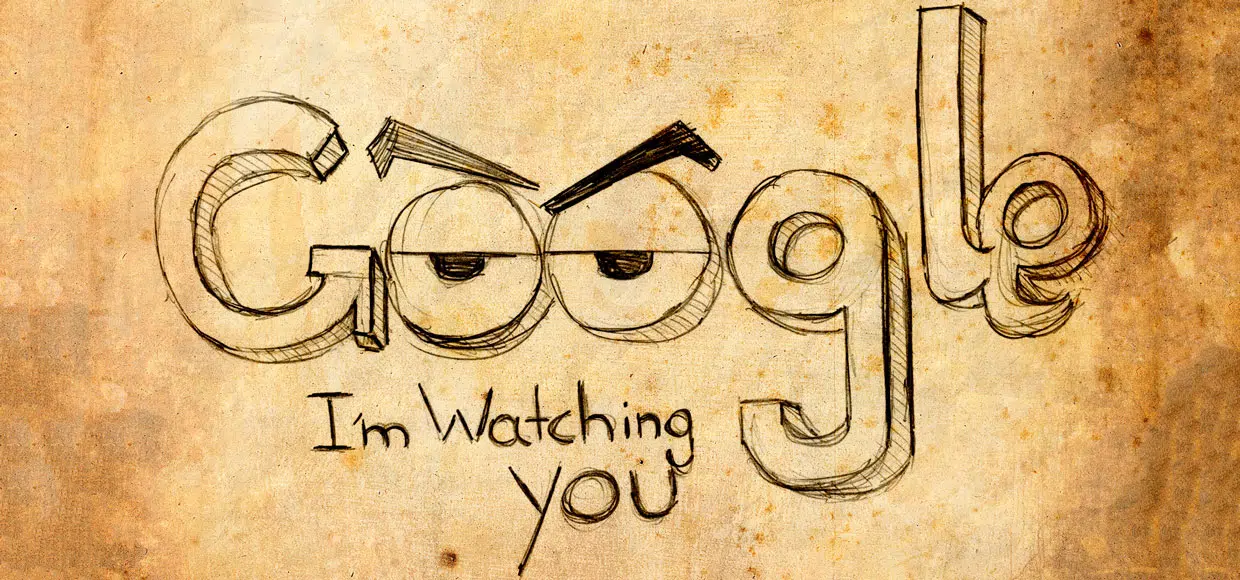 Google
I'm Watching
you